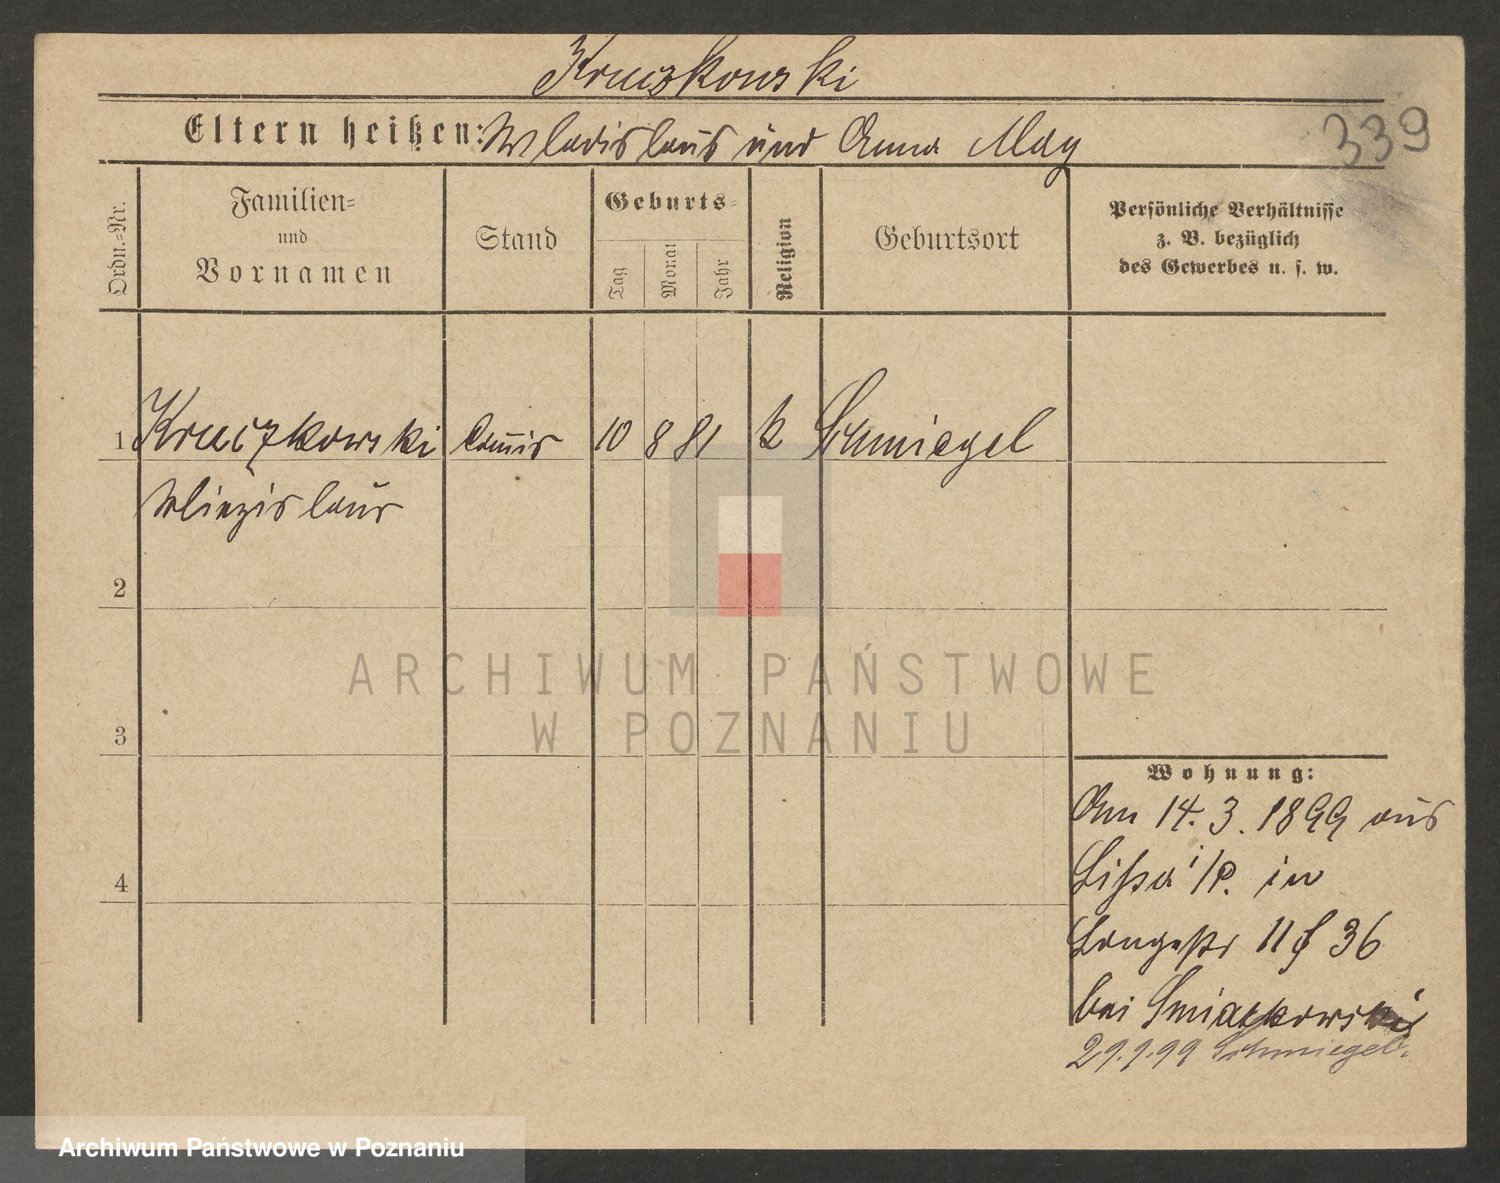 Kruczkowski
Eltern heißen: Wladislaus und Anna May
339
Ordn.=Nr.
Familien=
und
Vornamen
Stand
Geburts=
Tag
Monat
Jahr
Religion
Geburtsort
Persönliche Verhältnisse
z. B. bezüglich
des Gewerbes u. s. w.
1 Kruczkowski Comis 10 8 81 k Schmiegel
2
3
4
Wohnung:
Am 14. 3. 1899 aus
Lißa i/P. in
Langestr 11 f 36
bei Smiatkowski
29.9.99 Schmiegel.
ARCHIWUM PAŃSTWOWE
W POZNANIU
Archiwum Państwowe w Poznaniu